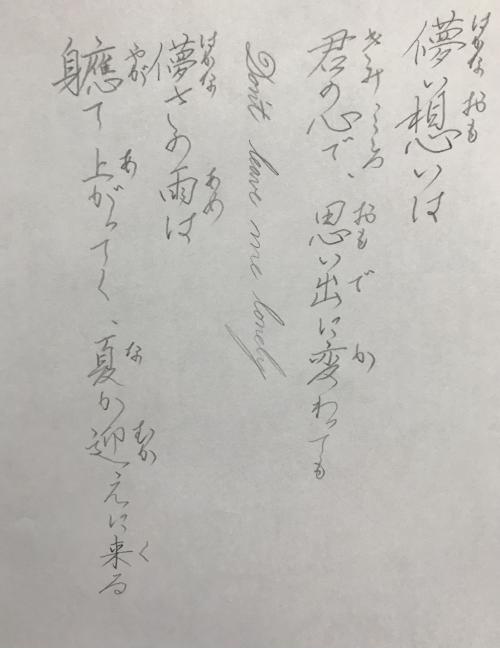 はかな おも
儚い想いは
きみ こころ おも で か
君の心で、思い出に変わっても
Don't leave me lonely
はかな あめ
儚さの雨は
やが あ な むか く
軈て上がってく、夏か迎えに来る